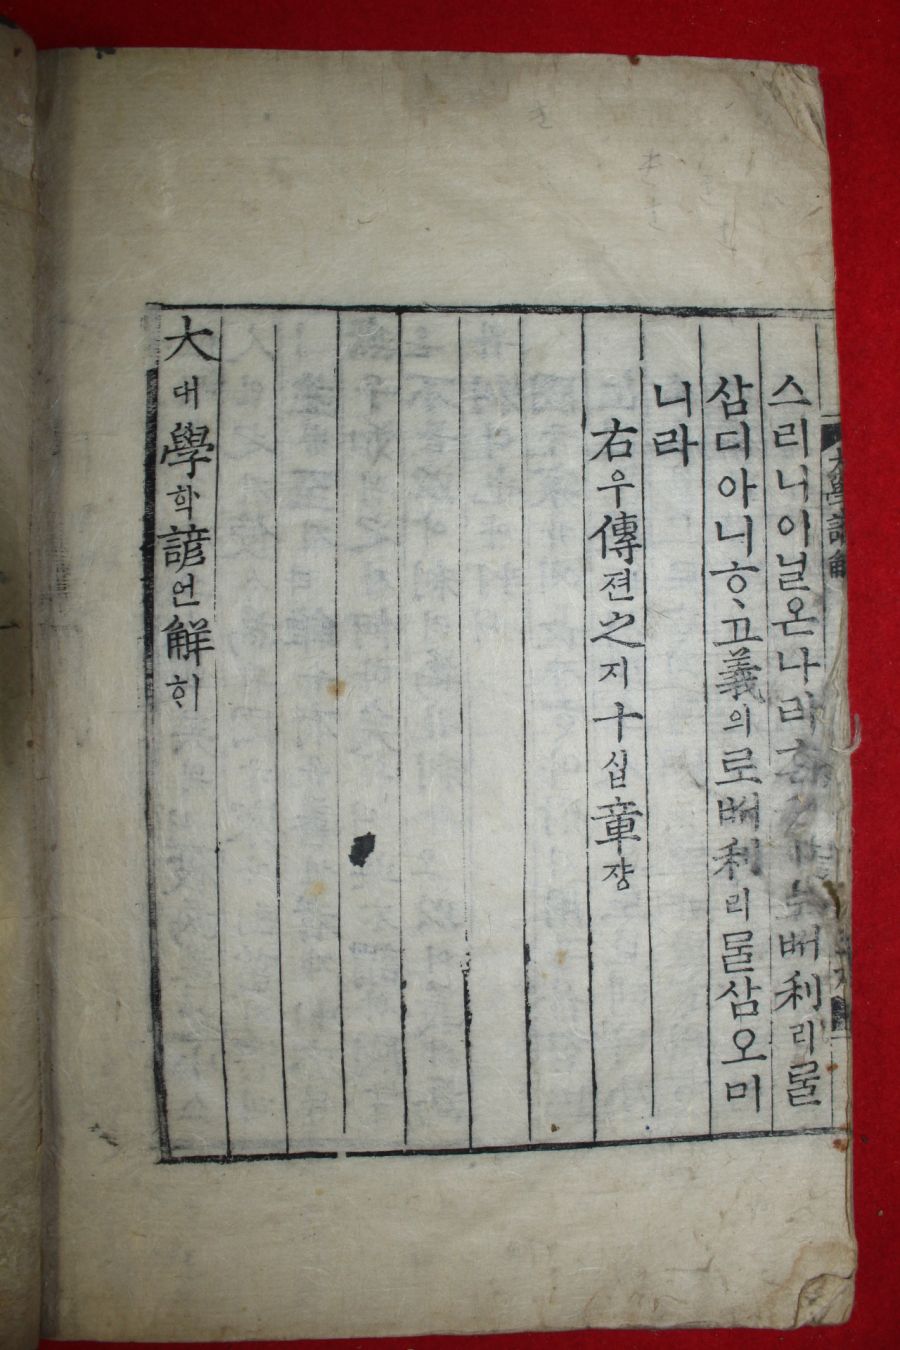 스리니이닐온나라 로ᄡᅥ利리를
삼디아니ᄒᆞ고義의로ᄡᅥ利리를삼오미
니라
右우傳젼之지十십章쟝
大대學학諺언解ᄒᆡ
大學諺解